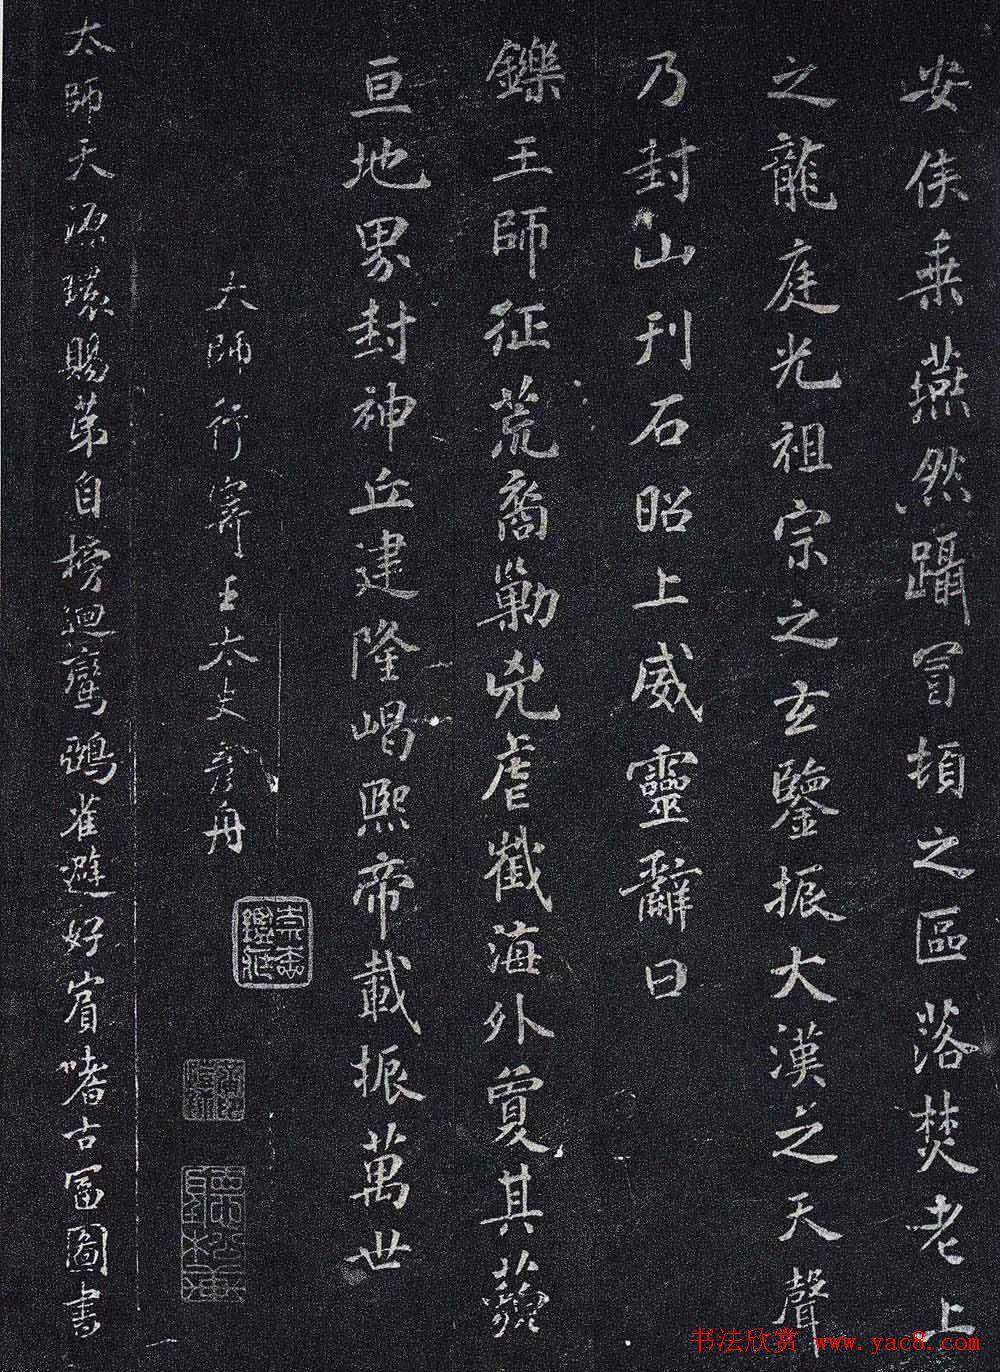 安侯乘燕然躡冒頓之區落焚老上
之龍庭光祖宗之玄鑒振大漢之天聲
乃封山刊石昭上威靈辭曰
鑠王師征荒裔勦兇虐截海外敻其藐
亘地界封神丘建隆嵑熙帝載振萬世
太師行寄王太史彥舟
太師天源環賜第自榜迴鸞鵶雀避好賓嗜古冨圖書
书法欣赏 www.yac8.com